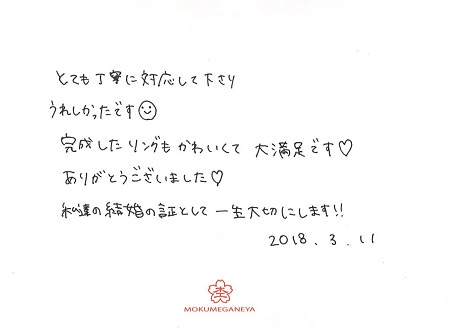 とても丁寧に対応して下さり
うれしかったです☺
完成したリングもかわいくて 大満足です♡
ありがとうございました♡
私達の結婚の証として 一生大切にします!!
2018.3.11
MOKUMEGANEYA